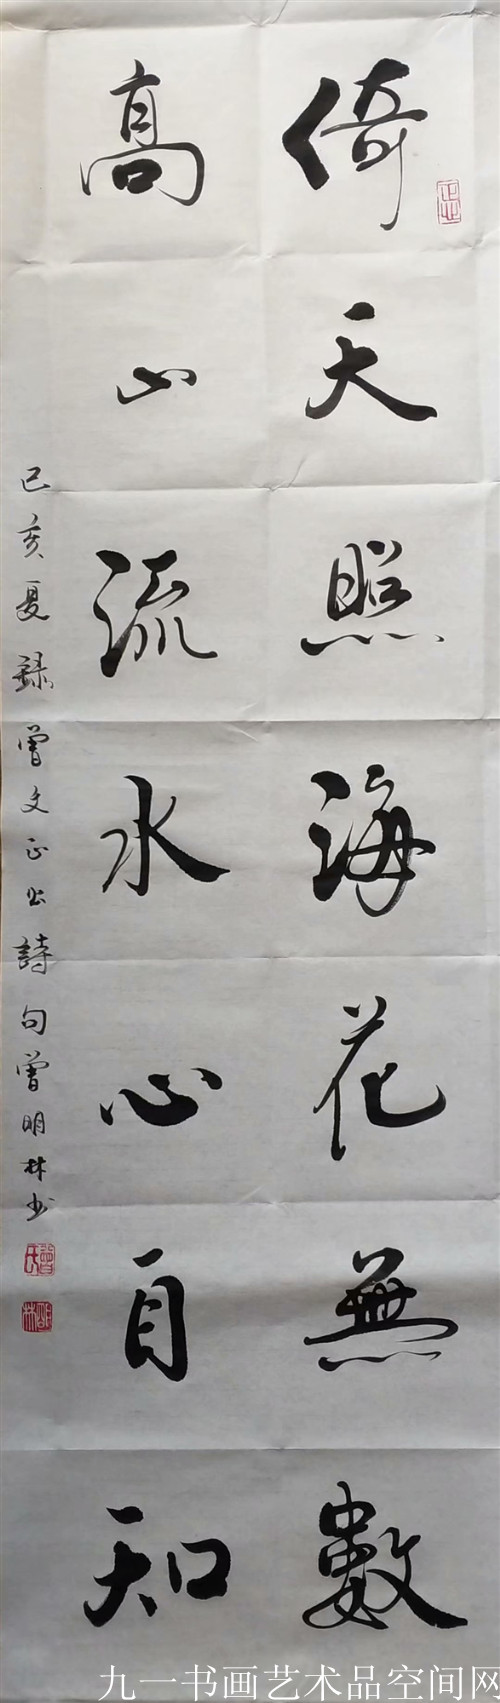 倚天照海花無數
高山流水心自知
己亥夏録曾文正公詩句曾明林书
曾氏
明林
九一书画艺术品空间网